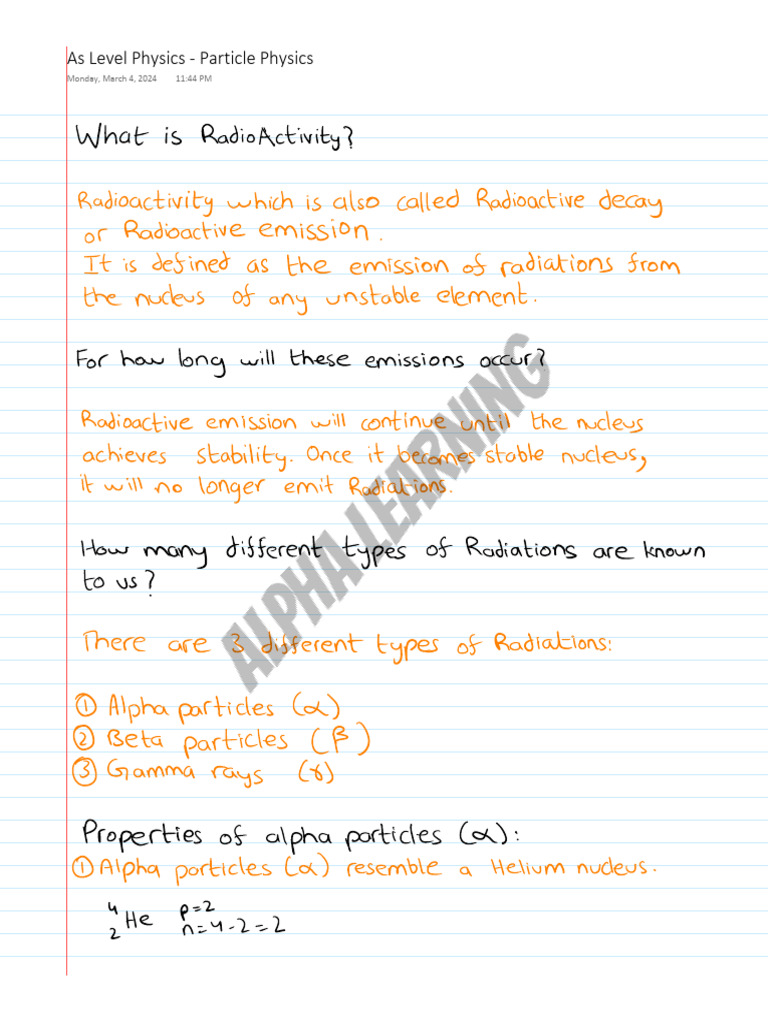 As Level Physics - Particle Physics
Monday, March 4, 2024 11:44 PM
What is RadioActivity?
Radioactivity which is also called Radioactive decay
or Radioactive emission.
It is defined as the emission of radiations from
the nucleus of any unstable element.
For how long will these emissions occur?
Radioactive emission will continue until the nucleus
achieves stability. Once it becomes stable nucleus,
it will no longer emit Radiations.
How many different types of Radiations are known
to us?
There are 3 different types of Radiations:
① Alpha particles (α)
② Beta particles (β)
③ Gamma rays (γ)
Properties of alpha particles (α):
① Alpha particles (α) resemble a Helium nucleus.
⁴₂He p=2
n=4-2=2
ALPHA LEARNING